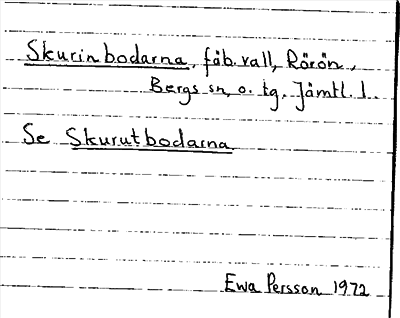 Skurinbodarna, fäb.vall, Rörön,
Bergs sn, o. tg. Jämtl. l.
Se Skurutbodarna
Ewa Persson 1972